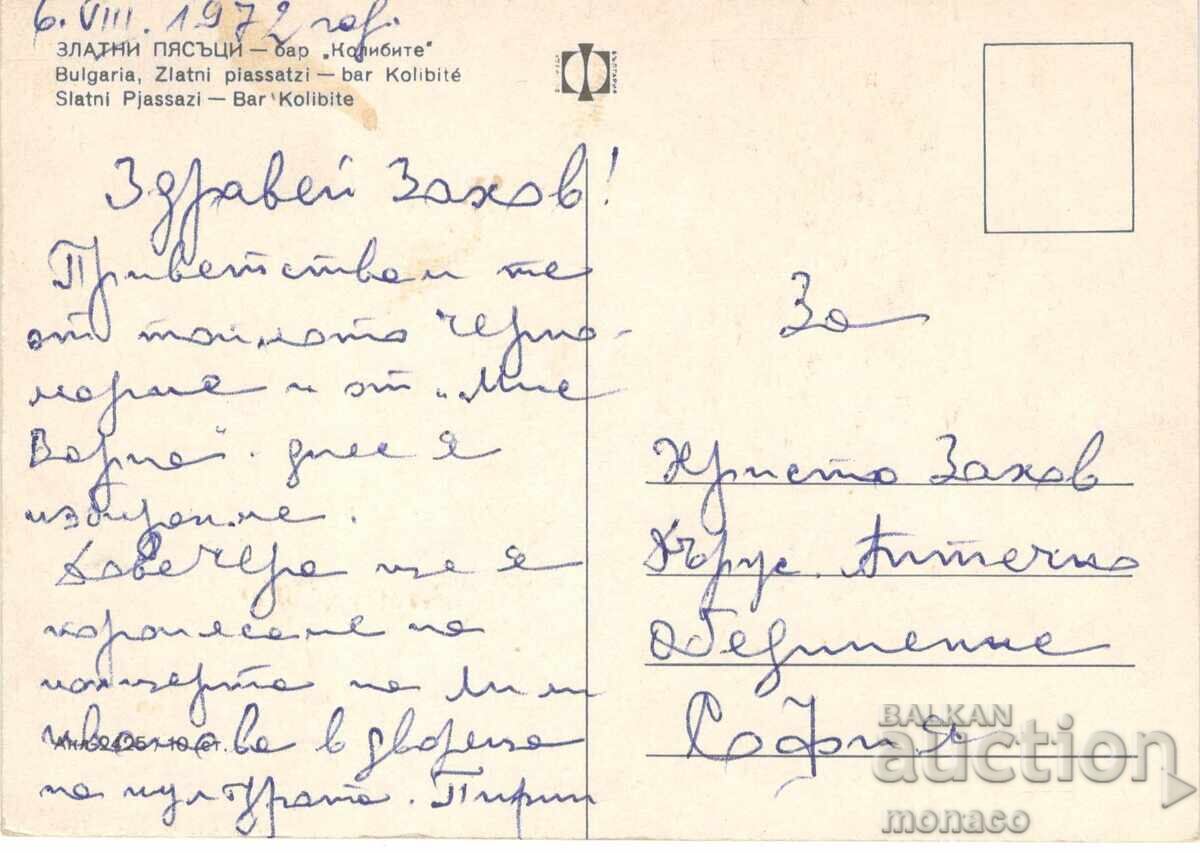 6. VIII. 1972 год.
ЗЛАТНИ ПЯСЪЦИ — бар „Колибите"
Bulgaria, Zlatni piassatzi — bar Kolibité
Slatni Pjassazi — Bar Kolibite
Здравей Захов!
Приветствам те
от топлото Черно-
морие и от „Мис
Варна". днес е
избрание.
Довечера ще я
коронясаме на
концерта на Лили
Иванова в двореца
на културата. Пирин
За
Христо Захов
Аптечно
Обединение
София
BALKAN
auction
monaco